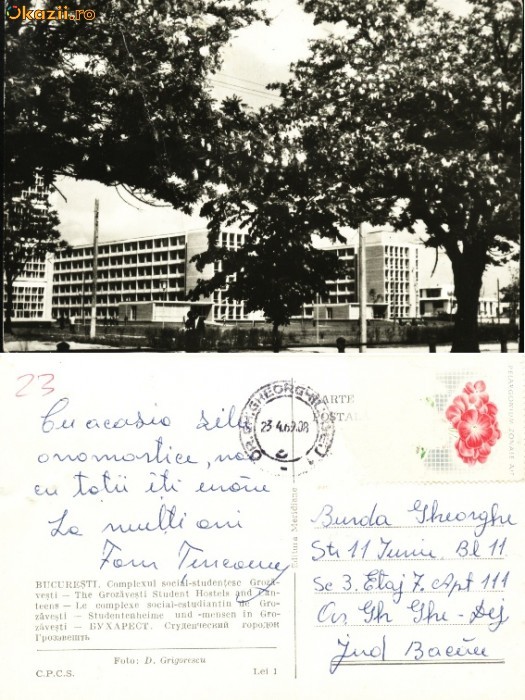 Okazii.ro
23
Cu ocazia zilei
onomastice, noi
cu toții îți urăm
La mulți ani
Fam
CARTE
POSTALĂ
23.4.69.08
PELARGONIUM ZONALE
Editura Meridiane
Burda Gheorghe
Str 11 Iunie, Bl 11
Sc 3. Etaj 7. Apt 111
Or. Gh Ghe-Dej
Jud Bacău
BUCUREȘTI. Complexul social-studențesc Groză-
vești — The Grozăvești Student Hostels and Can-
teens — Le complexe social-estudiantin de Gro-
zăvești — Studentenheime und -mensen in Gro-
zăvești — БУХАРЕСТ. Студенческий городок
Грозэвешть
Foto: D. Grigorescu
C.P.C.S. Lei 1